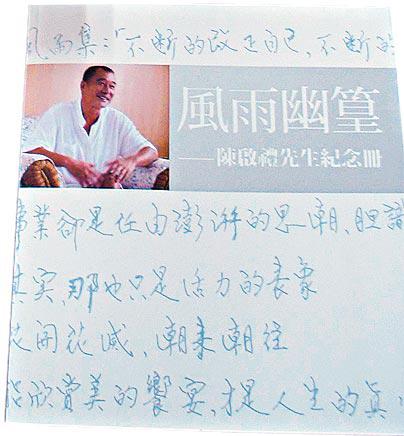 風雨集:「不断的改正自己,不断的
風雨幽篁
——陳啟禮先生紀念冊
事業卻是任由澎湃的思潮、胆識
其实,那也只是活力的表象
花開花感、潮来潮往
侶欣賞美的饗宴,才是人生的真